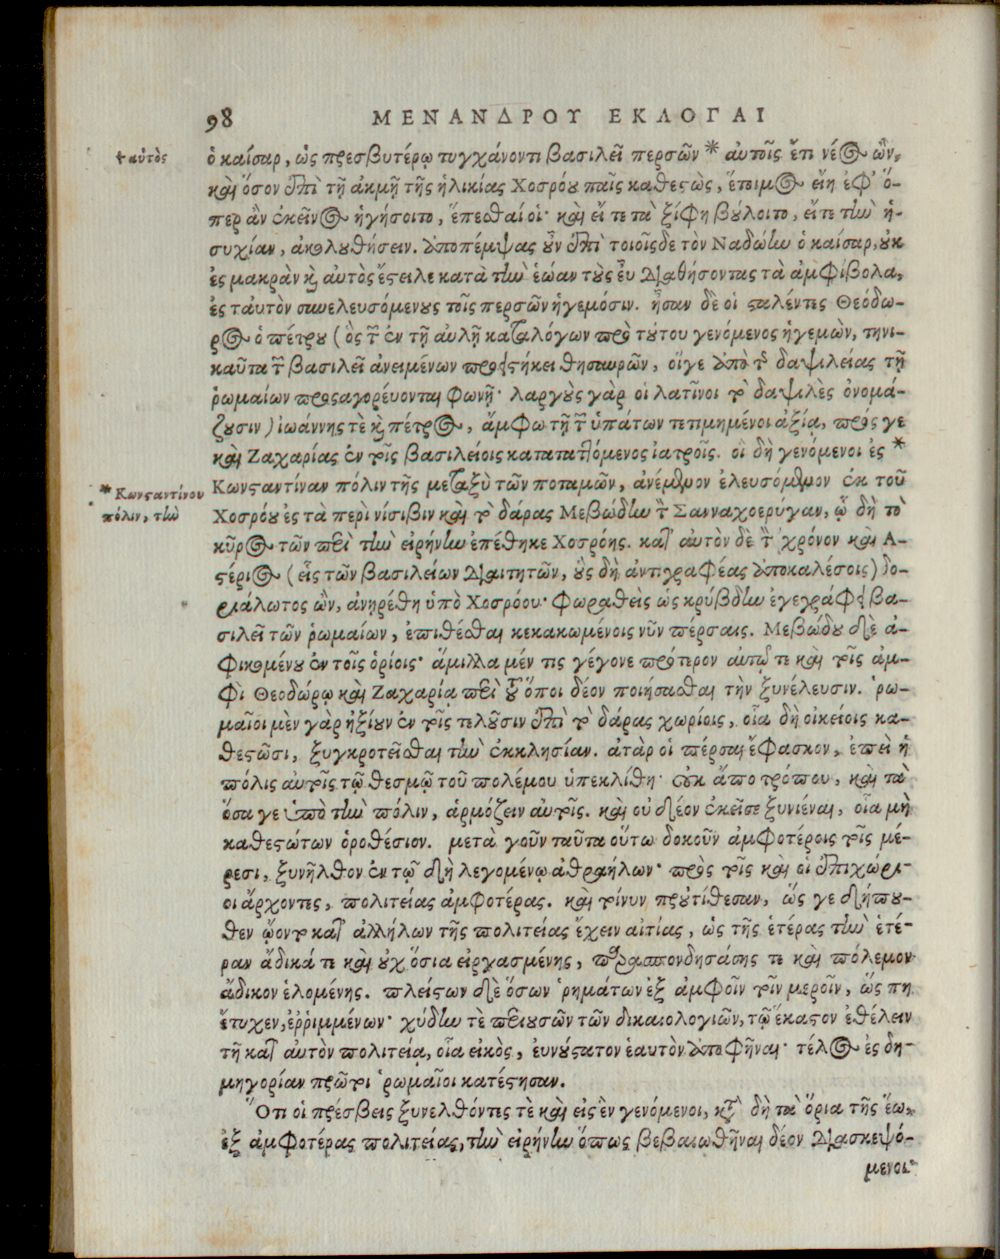 98 ΜΕΝΑΝΔΡΟΥ ΕΚΛΟΓΑΙ
† αὐτὸς
ὁ καίσαρ, ὡς πρεσβυτέρῳ τυγχάνοντι βασιλεῖ περσῶν * αὐτοῖς ἔτι νέος ὢν,
καὶ ὅσον ἐπὶ τῇ ἀκμῇ τῆς ἡλικίας Χοσρόου παῖς καθεστὼς, ἕτοιμος εἴη ἐφ' ὅ-
περ ἂν ἐκεῖνος ἡγήσοιτο, ἕπεσθαί οἱ· καὶ εἴ τε τὰ ξίφη βούλοιτο, εἴτε τὴν ἡ-
συχίαν, ἀκολουθήσειν. ὑποπέμψας οὖν ἐπὶ τοιοῖσδε τὸν Ναδώην ὁ καίσαρ, οὐκ
ἐς μακρὰν καὶ αὐτὸς ἔστειλε κατὰ τὴν ἑώαν τοὺς εὖ διαθήσοντας τὰ ἀμφίβολα,
ἐς ταὐτὸν συνελευσόμενους τοῖς περσῶν ἡγεμόσιν. ἦσαν δὲ οἱ σταλέντες Θεόδω-
ρος ὁ πέτρου (ὃς τῶν ἐν τῇ αὐλῇ καταλόγων πρὸ τούτου γενόμενος ἡγεμὼν, τηνι-
καῦτα τῶν βασιλεῖ ἀνειμένων προεστήκει θησαυρῶν, οἵγε ἀπὸ τῆς δαψιλείας τῇ
ῥωμαίων προσαγορεύονται φωνῇ· λαργοὺς γὰρ οἱ λατῖνοι τὸ δαψιλὲς ὀνομά-
ζουσιν) ἰωαννης τὲ καὶ πέτρος, ἄμφω τῇ τῶν ὑπάτων τετιμημένοι ἀξίᾳ, πρός γε
καὶ Ζαχαρίας ἐν τοῖς βασιλείοις καταταττόμενος ἰατροῖς. οἳ δὴ γενόμενοι ἐς *
* Κωνσταντίνου
πόλιν, τὴν
Κωνσταντίναν πόλιν τῆς μεταξὺ τῶν ποταμῶν, ἀνέμενον ἐλευσόμενον ἐκ τοῦ
Χοσρόου ἐς τὰ περὶ νίσιβιν καὶ τὸ δάρας Μεβώδην τὸν Σανναχοερύγαν, ᾧ δὴ τὸ
κῦρος τῶν περὶ τὴν εἰρήνην ἐπέθηκε Χοσρόης. κατ' αὐτὸν δὲ τὸν χρόνον καὶ Α-
στέριος (εἷς τῶν βασιλείων διαιτητῶν, οὓς δὴ ἀντιγραφέας ἀποκαλέσοις) δο-
ριάλωτος ὢν, ἀνῃρέθη ὑπὸ Χοσρόου· φωραθεὶς ὡς κρύβδην ἐγεγράφει βα-
σιλεῖ τῶν ῥωμαίων, ἐπιθέσθαι κεκακωμένοις νῦν πέρσαις. Μεβώδου δὲ ἀ-
φικομένου ἐν τοῖς ὁρίοις· ἅμιλλα μέν τις γέγονε πρότερον αὐτῷ τε καὶ τοῖς ἀμ-
φὶ Θεοδώρῳ καὶ Ζαχαρίᾳ περὶ τοῦ ὅποι δέον ποιήσασθαι τὴν ξυνέλευσιν. ῥω-
μαῖοι μὲν γὰρ ἠξίουν ἐν τοῖς τελοῦσιν ἐπὶ τὸ δάρας χωρίοις, οἷα δὴ οἰκείοις κα-
θεστῶσι, ξυγκροτεῖσθαι τὴν ἐκκλησίαν. ἀτὰρ οἱ πέρσαι ἔφασκον, ἐπεὶ ἡ
πόλις αὐτοῖς τῷ θεσμῷ τοῦ πολέμου ὑπεκλίθη· οὐκ ἄπο τρόπου, καὶ τὰ
ὅσα γε ὑπὸ τὴν πόλιν, ἁρμόζειν αὐτοῖς. καὶ οὐ δέον ἐκεῖσε ξυνιέναι, οἷα μὴ
καθεστώτων ὁροθέσιον. μετὰ γοῦν ταῦτα οὕτω δοκοῦν ἀμφοτέροις τοῖς μέ-
ρεσι, ξυνῆλθον ἐν τῷ δὴ λεγομένῳ ἀθραήλων· πρὸς τοῖς καὶ οἱ ἐπιχώρι-
οι ἄρχοντες, πολιτείας ἀμφοτέρας. καὶ τοίνυν προὐτίθεσαν, ὥς γε δήπου-
θεν ᾤοντο κατ' ἀλλήλων τῆς πολιτείας ἔχειν αἰτίας, ὡς τῆς ἑτέρας τὴν ἑτέ-
ραν ἄδικά τε καὶ οὐχ ὅσια εἰργασμένης, παρασπονδησάσης τε καὶ πόλεμον
ἄδικον ἑλομένης. πλείστων δὲ ὅσων ῥημάτων ἐξ ἀμφοῖν τοῖν μεροῖν, ὥς πη
ἔτυχεν, ἐρριμμένων· χύδην τὲ περιουσῶν τῶν δικαιολογιῶν, τῷ ἕκαστον ἐθέλειν
τῇ κατ' αὐτὸν πολιτείᾳ, οἷα εἰκὸς, εὐνούστατον ἑαυτὸν ἀποφῆναι· τέλος ἐς δη-
μηγορίαν πρῶτοι ῥωμαῖοι κατέστησαν.
Ὅτι οἱ πρέσβεις ξυνελθόντες τὲ καὶ εἰς ἓν γενόμενοι, κατὰ δὴ τὰ ὅρια τῆς ἕω,
ἐξ ἀμφοτέρας πολιτείας, τὴν εἰρήνην ὅπως βεβαιωθῆναι δέον διασκεψό-
μενοι·